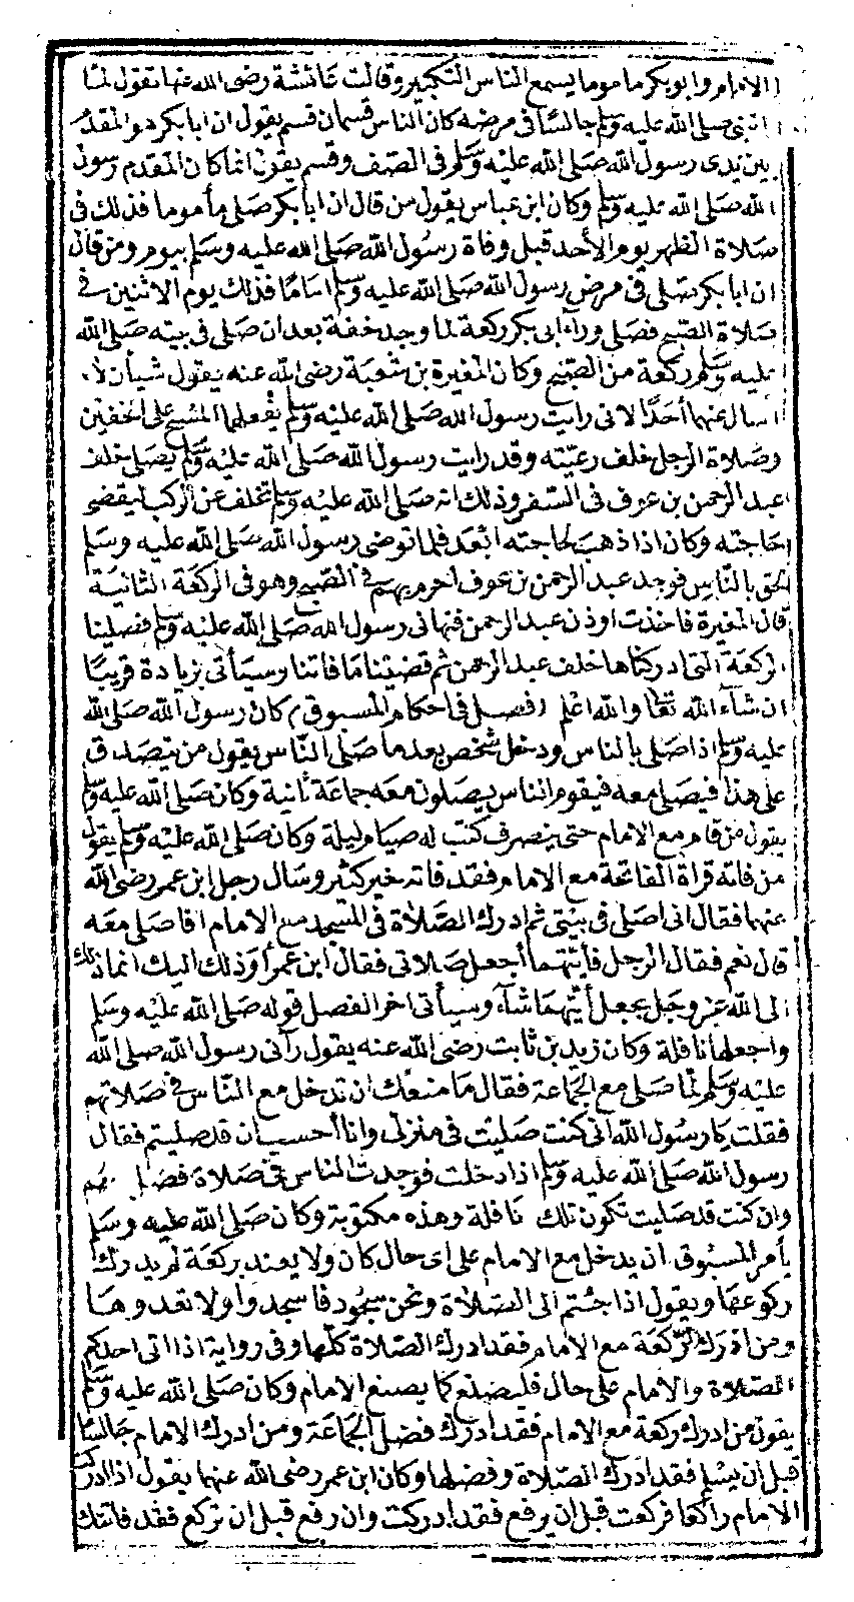 الامام وابو بكر ماموما يسمع الناس التكبير وقالت عائشة رضى الله عنها تقول لما
صلى الله عليه وسلم جالسا فى مرضه كان الناس قسمان قسم يقول ان ابا بكر هو المقدم
بين يدى رسول الله صلى الله عليه وسلم فى الصف وقسم يقول انما كان المقدم رسول
الله صلى الله عليه وسلم وكان ابن عباس يقول من قال ان ابا بكر صلى مأموما فذلك فى
صلاة الظهر يوم الأحد قبل وفاة رسول الله صلى الله عليه وسلم بيوم ومن قال
ان ابا بكر صلى فى مرض رسول الله صلى الله عليه وسلم اماما فذلك يوم الاثنين فى
صلاة الصبح فصلى وراء ابى بكر ركعة لما وجد خفة بعد ان صلى فى بيته صلى الله
عليه وسلم ركعة من الصبح وكان المغيرة بن شعبة رضى الله عنه يقول شيأن لا
اسال عنهما أحدا لانى رايت رسول الله صلى الله عليه وسلم يفعلهما المسح على الخفين
وصلاة الرجل خلف رعيته وقد رايت رسول الله صلى الله عليه وسلم يصلى خلف
عبد الرحمن بن عوف فى السفر وذلك انه صلى الله عليه وسلم تخلف عن الركب ليقضى
حاجته وكان اذا ذهب لحاجته ابعد فلما توضى رسول الله صلى الله عليه وسلم
لحق بالناس فوجد عبد الرحمن بن عوف احرم بهم فى الصبح وهو فى الركعة الثانية
قال المغيرة فاخذت اوذن عبد الرحمن فنهانى رسول الله صلى الله عليه وسلم فصلينا
الركعة التى ادركناها خلف عبد الرحمن ثم قضينا ما فاتنا وسيأتى بزيادة قريبا
ان شآء الله تعا والله اعلم فصل فى احكام المسبوق كان رسول الله صلى الله
عليه وسلم اذا صلى بالناس ودخل شخص بعد ما صلى الناس يقول من يتصدق
على هذا فيصلى معه فيقوم الناس يصلون معه جماعة ثانية وكان صلى الله عليه وسلم
يقول من قام مع الامام حتى ينصرف كتب له صيام ليلة وكان صلى الله عليه وسلم يقول
من فاته قراة الفاتحة مع الامام فقد فاته خير كثير وسال رجل ابن عمر رضى الله
عنهما فقال انى اصلى فى بيتى ثم ادرك الصلاة فى المسجد مع الامام افاصلى معه
قال نعم فقال الرجل فأيتهما أجعل صلاتى فقال ابن عمر أوذلك اليك انما ذلك
الى الله عز وجل يجعل أيتهما شآء وسيأتى اخر الفصل قوله صلى الله عليه وسلم
واجعلها نافلة وكان زيد بن ثابت رضى الله عنه يقول رآنى رسول الله صلى الله
عليه وسلم لما صلى مع الجماعة فقال ما منعك ان تدخل مع الناس فى صلاتهم
فقلت يا رسول الله انى كنت صليت فى منزلى وانا أحسب ان قد صليتم فقال
رسول الله صلى الله عليه وسلم اذا دخلت فوجدت الناس فى صلاة فصل معهم
وان كنت قد صليت تكون تلك نافلة وهذه مكتوبة وكان صلى الله عليه وسلم
يأمر المسبوق ان يدخل مع الامام على اى حال كان ولا يعتد بركعة لم يدرك
ركوعها ويقول اذا جئتم الى الصلاة ونحن سجود فاسجدوا ولا تعدوها
ومن ادرك الركعة مع الامام فقد ادرك الصلاة كلها وفى رواية اذا اتى احدكم
الصلاة والامام على حال فليصنع كما يصنع الامام وكان صلى الله عليه وسلم
يقول من ادرك ركعة مع الامام فقد ادرك فضل الجماعة ومن ادرك الامام جالسا
قبل ان يسلم فقد ادرك الصلاة وفضلها وكان ابن عمر رضى الله عنهما يقول اذا ادركت
الامام راكعا فركعت قبل ان يرفع فقد ادركت وان رفع قبل ان تركع فقد فاتتك